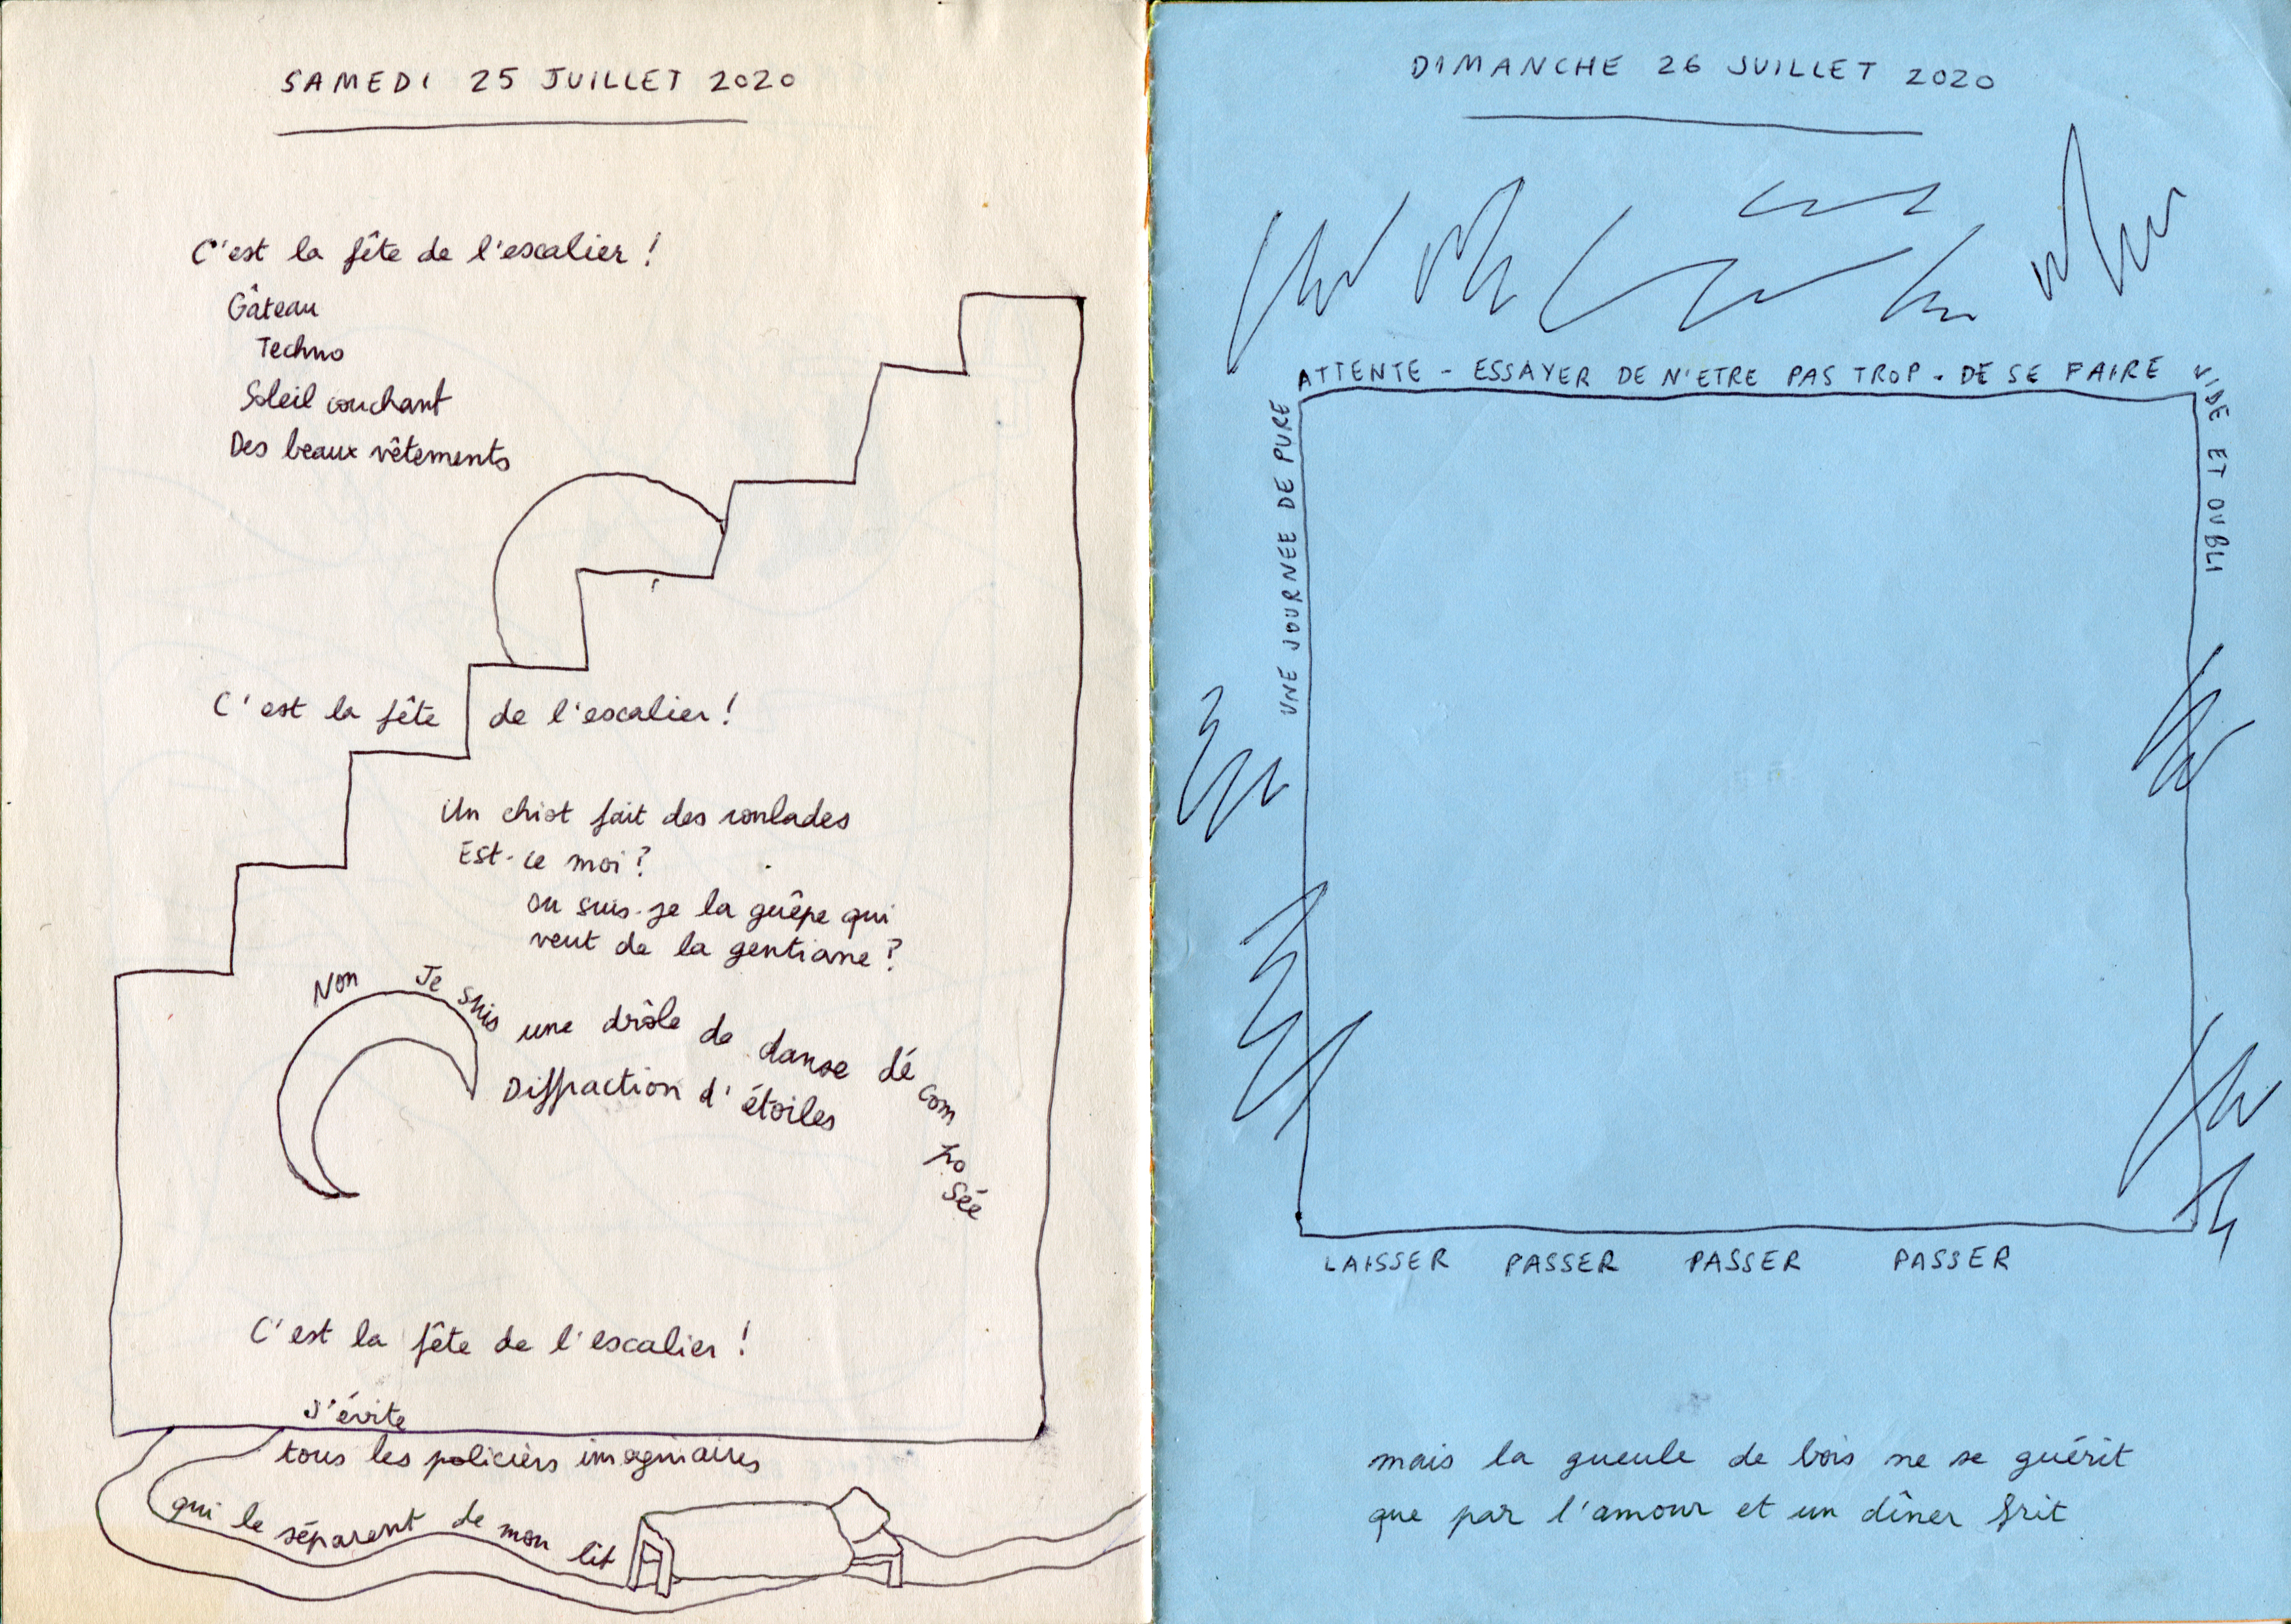 SAMEDI 25 JUILLET 2020
C'est la fête de l'escalier !
Gâteau
Techno
Soleil couchant
Des beaux vêtements
C'est la fête de l'escalier !
Un chiot fait des roulades
Est-ce moi ?
ou suis-je la guêpe qui
veut de la gentiane ?
Non Je suis une drôle de danse dé com po sée
Diffraction d'étoiles
C'est la fête de l'escalier !
J'évite
tous les policiers imaginaires
qui le séparent de mon lit
DIMANCHE 26 JUILLET 2020
UNE JOURNEE DE PURE
ATTENTE - ESSAYER DE N'ETRE PAS TROP - DE SE FAIRE
VIDE ET OUBLI
LAISSER PASSER PASSER PASSER
mais la gueule de bois ne se guérit
que par l'amour et un dîner frit